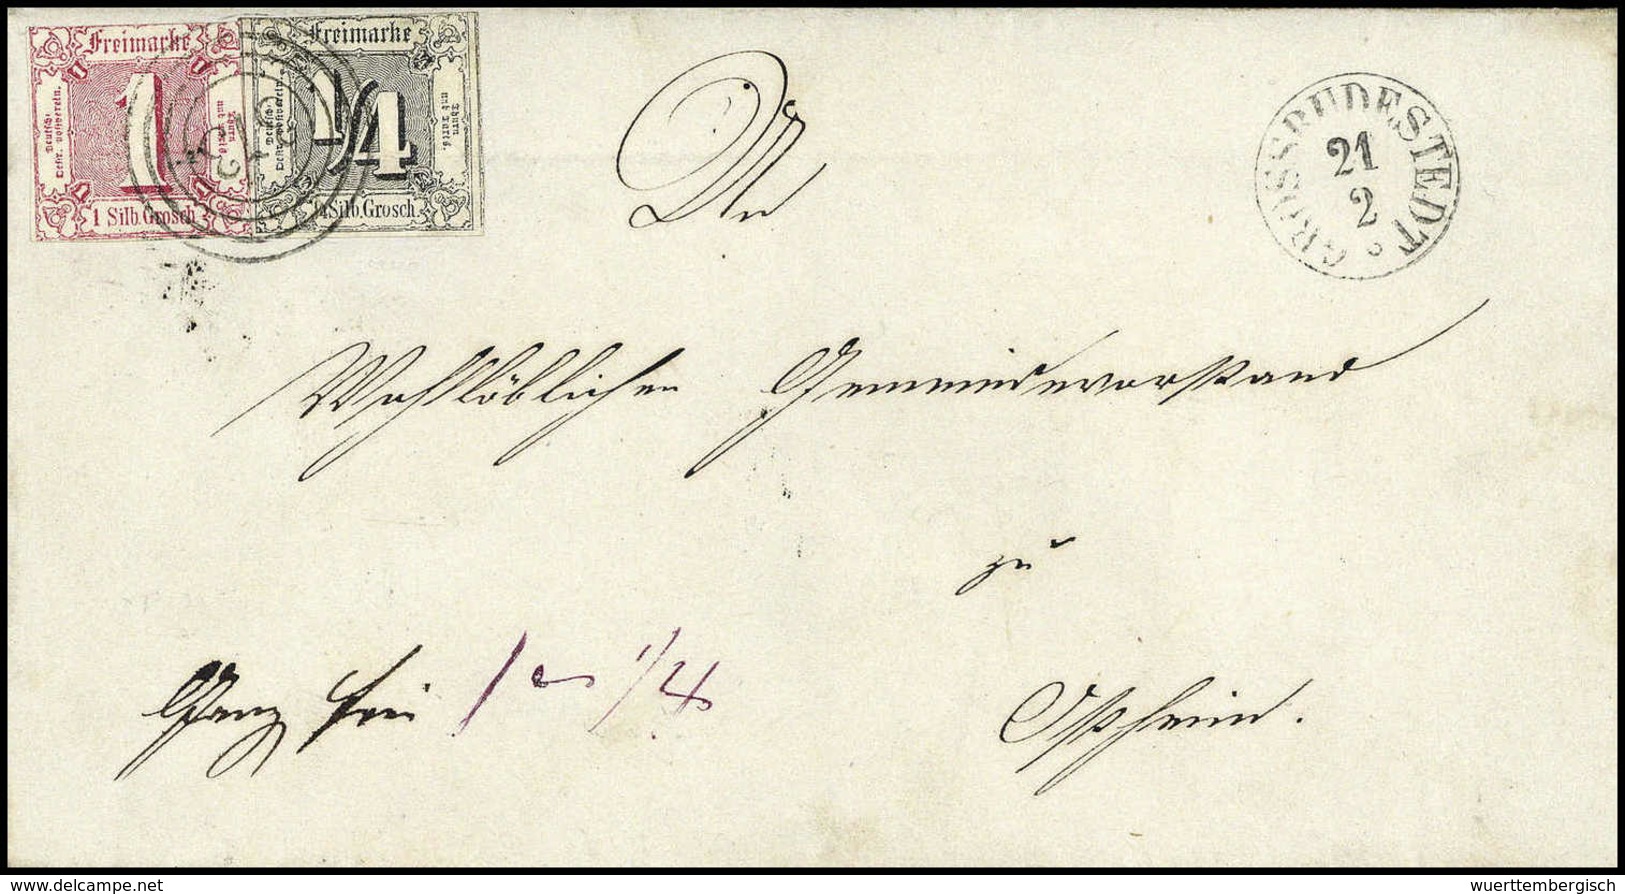 Freimarke
Deutsch-
Oestr. Postverein.
Thurn
und Taxis.
1
1 Silb. Grosch
Freimarke
Deutsch-
Oestr. Postverein.
Thurn
und Taxis.
1/4
1/4 Silb. Grosch.
GROSSRUDESTEDT
21
2
An
Wohllöblichen Gemeindevorstand
zu
Ganz frei 1 1/4
© www.delcampe.net
www.wuerttembergisch